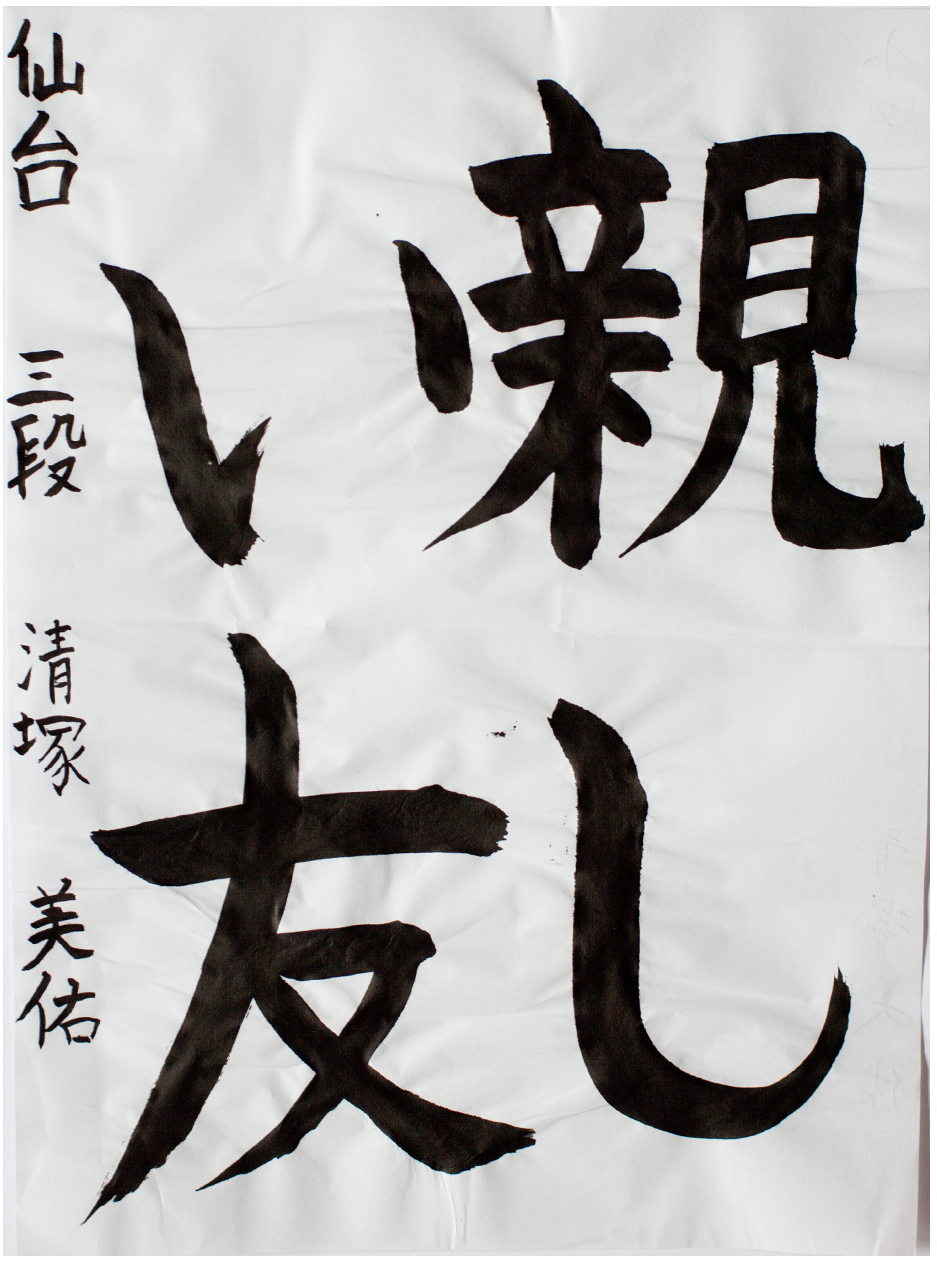 親し
い友
仙台 三段 清塚 美佑